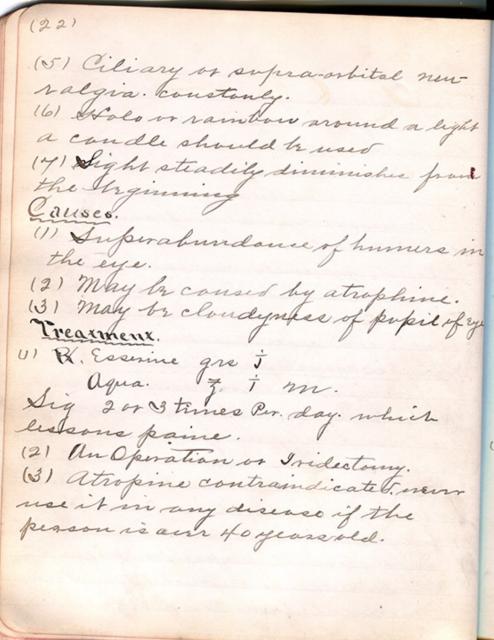 (22)
(5) Ciliary or supra-orbital neu-
ralgia. constanly.
(6) Halo or rainbow around a light
a candle should be used
(7) Sight steadily diminishes from
the beginning
Causes.
(1) Superabundance of humers in
the eye.
(2) May be caused by atrophine.
(3) May be cloudyness of pupil of eye
Treatment.
(1) ℞. Esserine grs j
Aqua. ℥ i m.
Sig 2 or 3 times Per. day. which
lessons paine.
(2) An Operation or Iridectomy.
(3) Atropine contraindicated. never
use it in any disease if the
person is over 40 years old.